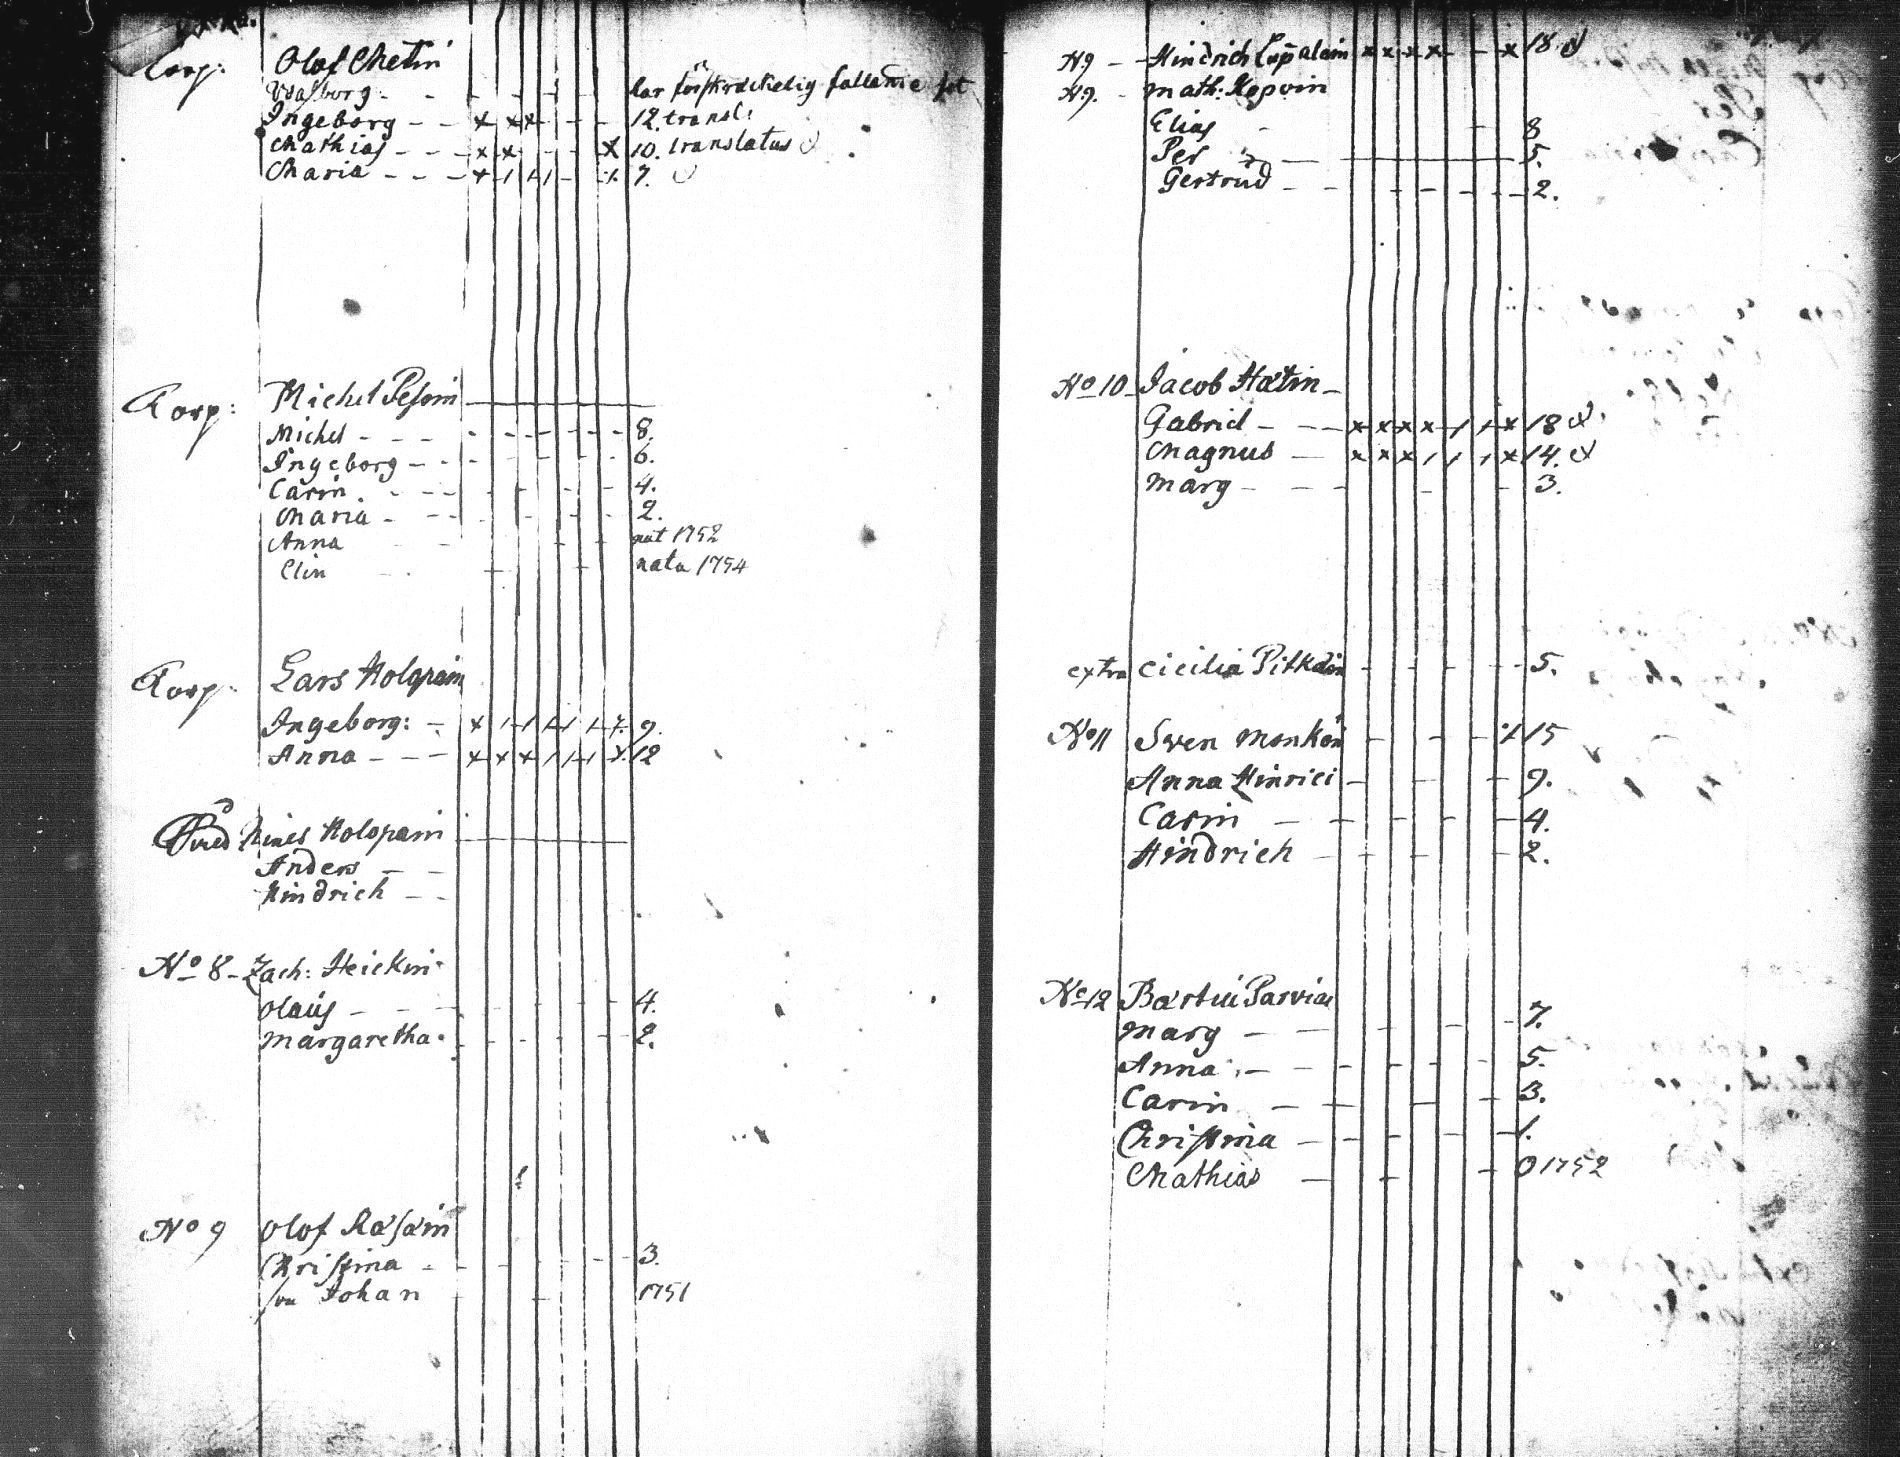 Korp: Olof Metin
Walborg - - - - - har förskräckelig fallande sot
Ingeborg - - x x x - - - - 12. transl:
Mathias - - - x x - - - x 10. translatus
Maria - - - - x 1 1 1 - - x 7.
Korp: Michel Pesoin
Michel - - - - - - - - - 8.
Ingeborg - - - - - - - - 6.
Carin - - - - - - - - 4.
Maria - - - - - - - - 2.
Anna - - - - nat 1752
Elin - - - nata 1754
Korp: Lars Holopain
Ingeborg: - x 1 1 1 1 1 x 9.
Anna - - - x x x 1 1 1 x 12
Holopain
Anders - -
Hindrich - -
No 8 - Zach: Heickin
Olaus - - - - 4.
Margaretha - - - - 2.
No 9 Olof Räsäin
Christina - - - - - - 3.
Johan - - 1751
N9 - Hindrich x x x x - - x 18
N9. - Math: Kopoin
Elias - - 8
Per - - 5.
Gertrud - - - - - - 2.
No 10 - Jacob Hätin -
Gabriel - - - x x x x 1 1 x 18
Magnus - x x x 1 1 1 x 14.
Marg - - - - - 3.
extra Cicilia Pitkäin - - - - 5.
No 11 Sven Monkoin - - - x 15
Anna Hinrici - - - - 9.
Carin - - - - - 4.
Hindrich - - - - 2.
No 12 Parviai
Marg - - - - - - 7.
Anna - - - - - - - 5.
Carin - - - - 3.
Christina - - - - - 1.
Mathias - - - 0 1752